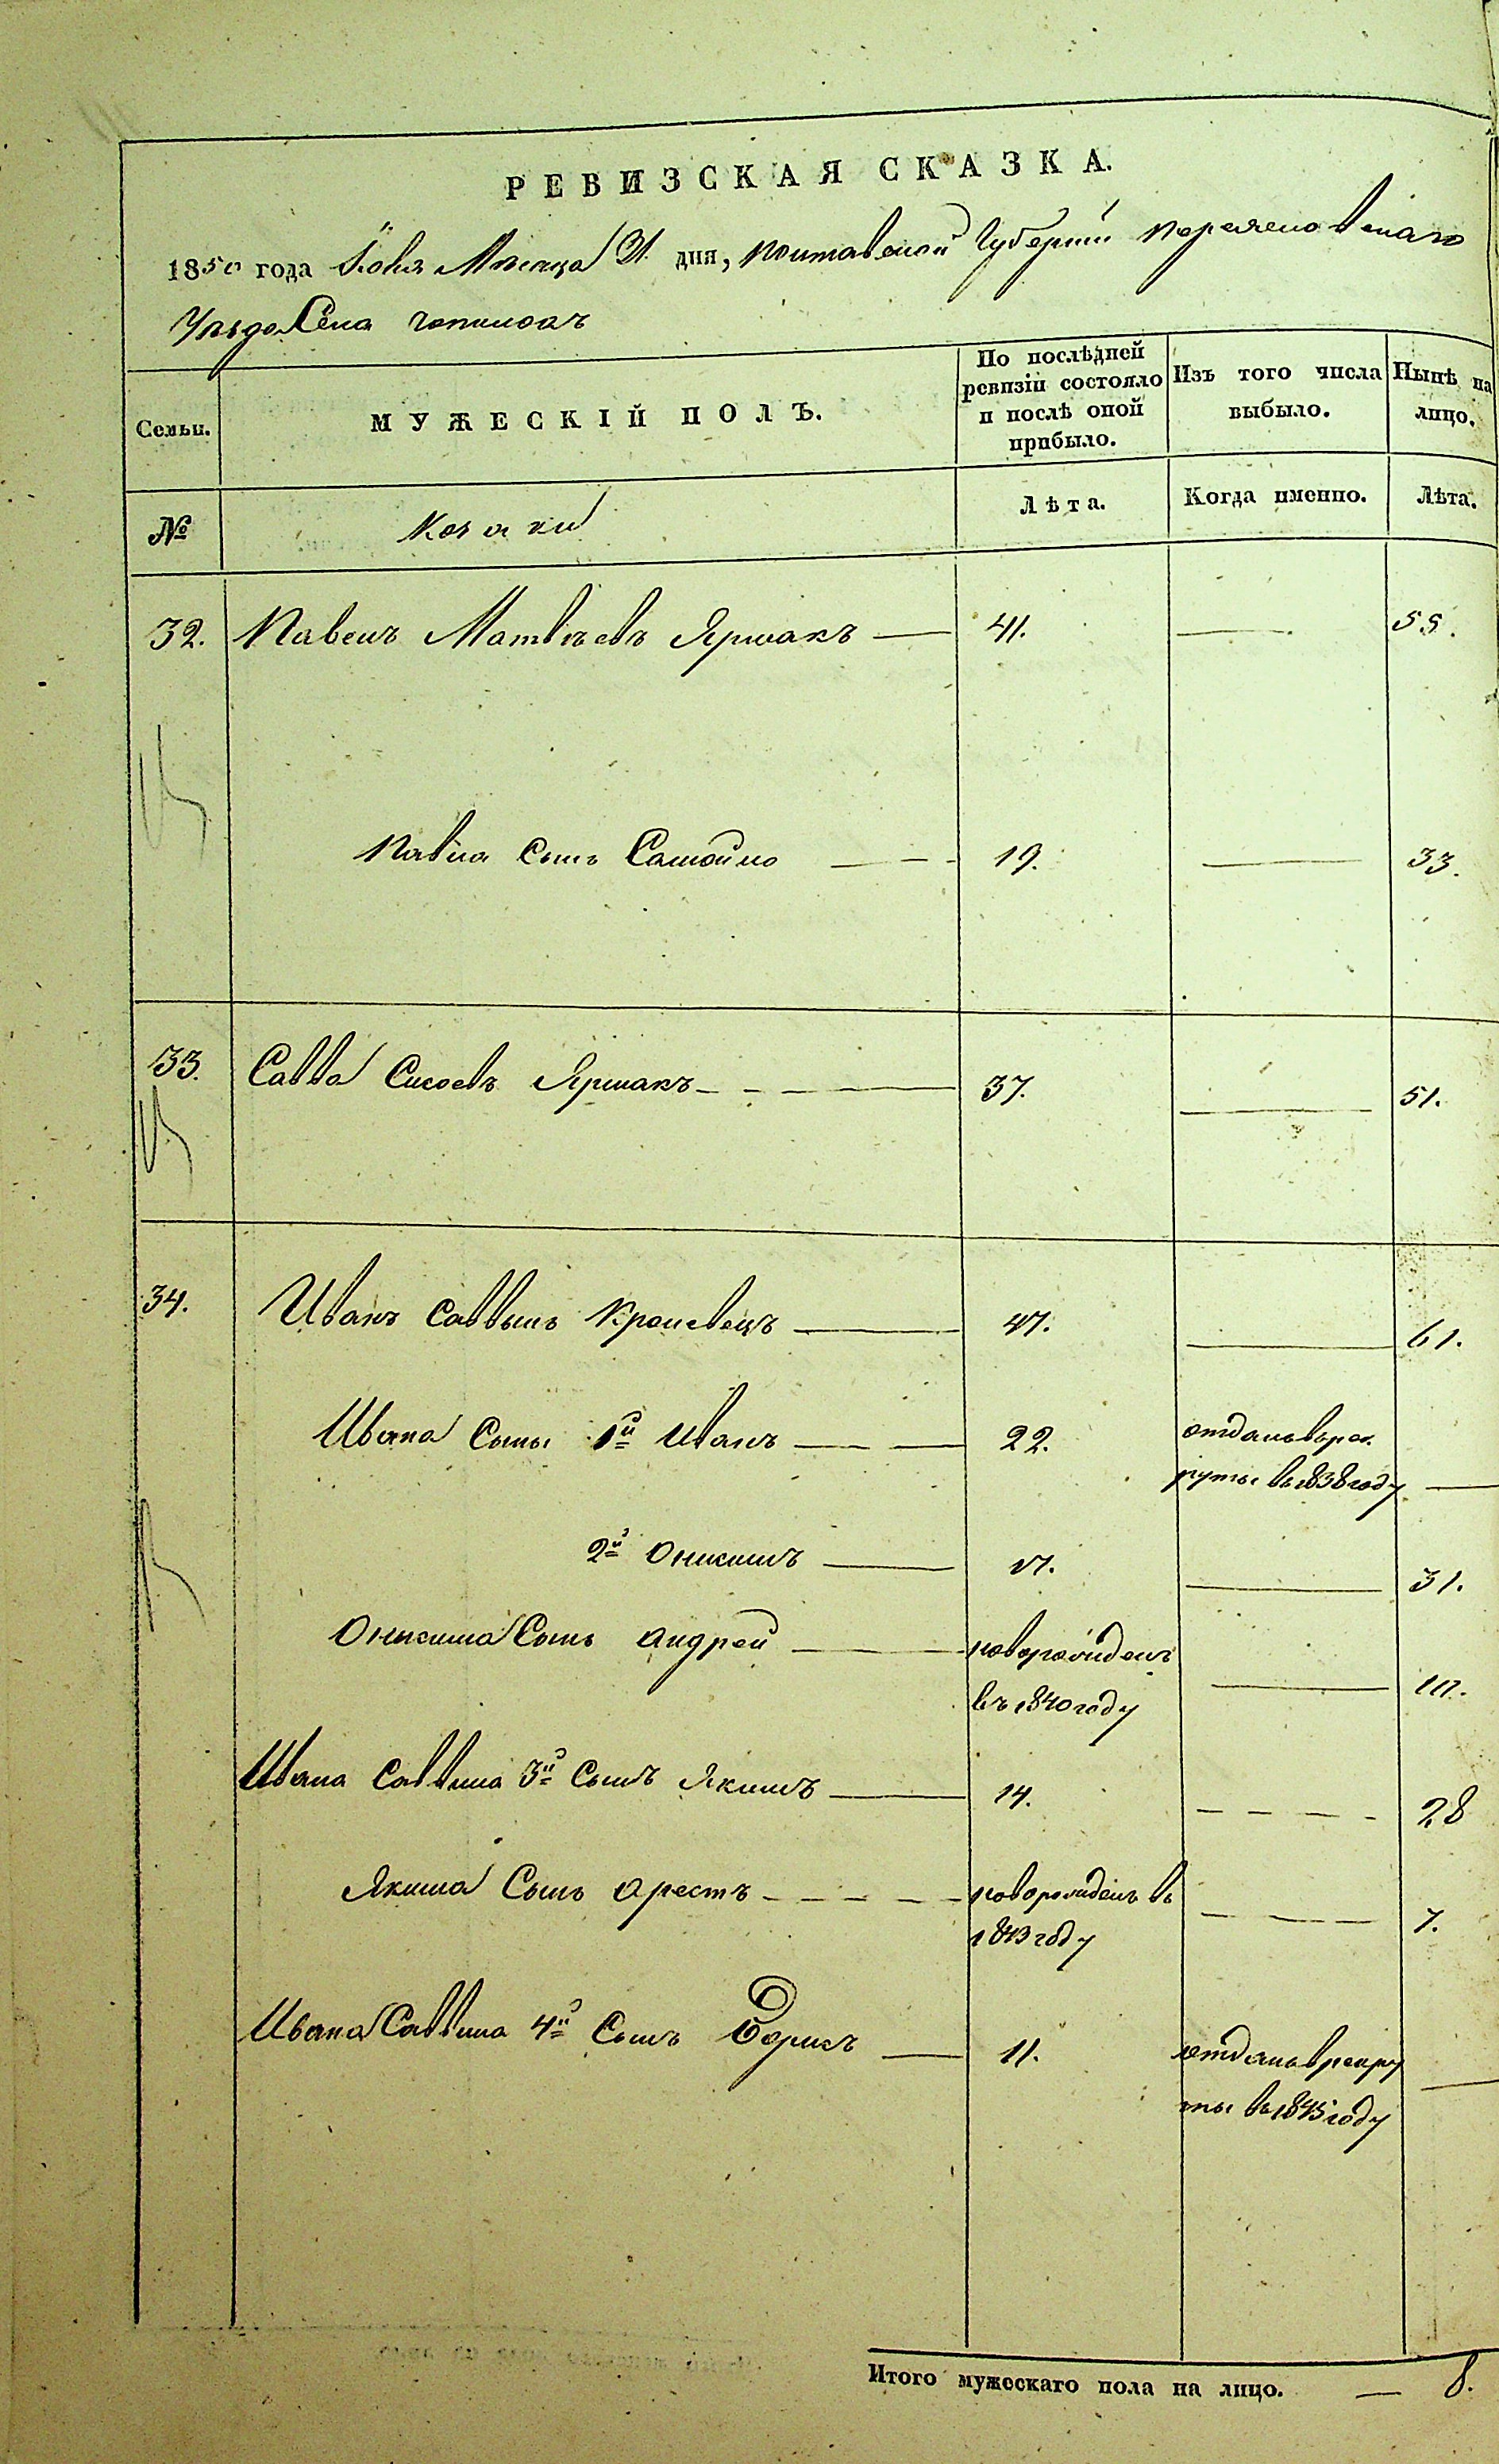 РЕВИЗСКАЯ СКАЗКА.
1850 года Іюня Месяца дня, Полтавской Губерніи Переяславскаго
Уѣзда Села
Семьи.
МУЖЕСКІЙ ПОЛЪ.
По послѣдней
ревизіи состояло
и послѣ оной
прибыло.
Изъ того числа
выбыло.
Нынѣ на
лицо.
№
Козаки
Лѣта.
Когда именно.
Лѣта.
32. Павелъ Матвѣевъ Ярмакъ — 41. — 55.
Павла Сынъ Самойло — 19. — 33.
33. Савва Сисоевъ Ярмакъ — 37. — 51.
34. Иванъ Саввинъ — 47. — 61.
Ивана Сыны 1й Иванъ — 22. отданъ въ рек
руты въ 1838 году —
2й Онисимъ — 17. — 31.
Онисима Сынъ Андрей — новорожденъ
въ 1840 году — 10.
Ивана Саввина 3й Сынъ Якимъ — 14. — 28
Якима Сынъ Арестъ — новорожденъ въ
1843 году — 7.
Ивана Саввина 4й Сынъ Борисъ — 11. отданъ в рекру
ты въ 1845 году —
Итого мужескаго пола на лицо. — 8.